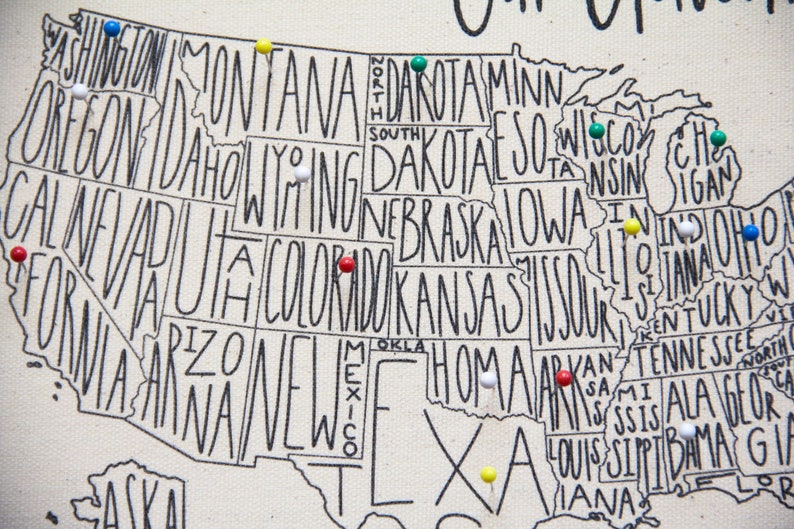 WASHINGTON
OREGON
CALIFORNIA
NEVADA
IDAHO
MONTANA
WYOMING
UTAH
COLORADO
ARIZONA
NEW MEXICO
NORTH DAKOTA
SOUTH DAKOTA
NEBRASKA
KANSAS
OKLAHOMA
TEXAS
MINNESOTA
IOWA
MISSOURI
ARKANSAS
LOUISIANA
WISCONSIN
ILLINOIS
MICHIGAN
INDIANA
OHIO
KENTUCKY
TENNESSEE
MISSISSIPPI
ALABAMA
GEORGIA
NORTH
SOUTH
CA
FLOR
ASKA